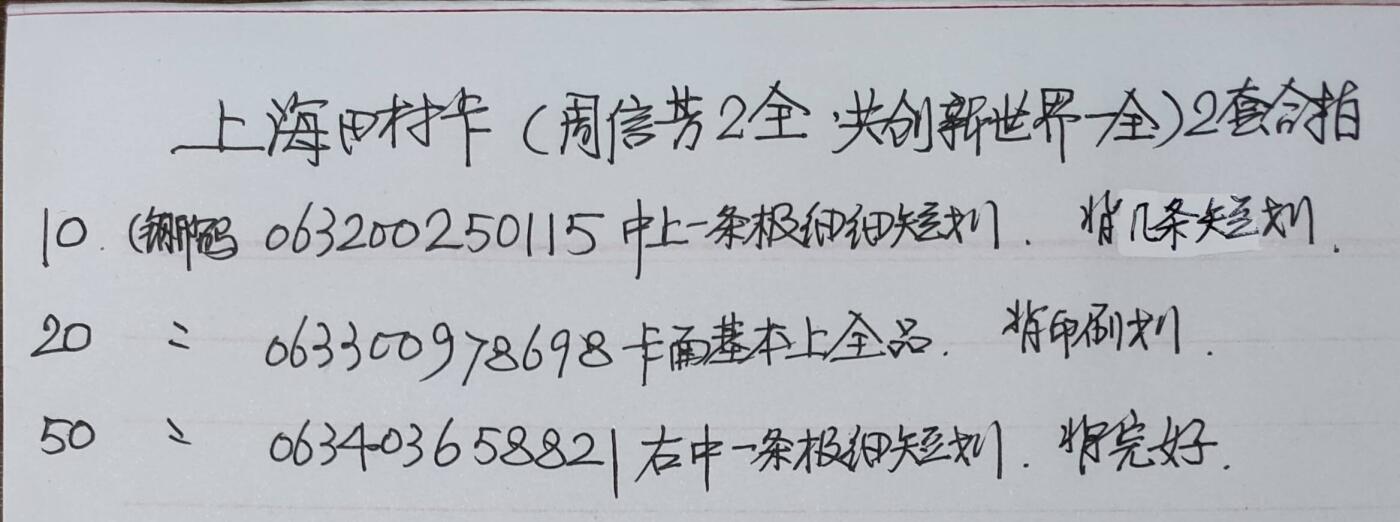 上海田村卡(周信芳2全.共创新世界一全)2套合拍
10.(钢码 063200250115中上一条极细细短划.背几条短划.
20 〃 063300978698卡面基本上全品.背印刷划.
50 〃 063403658821右中一条极细短划.背完好.